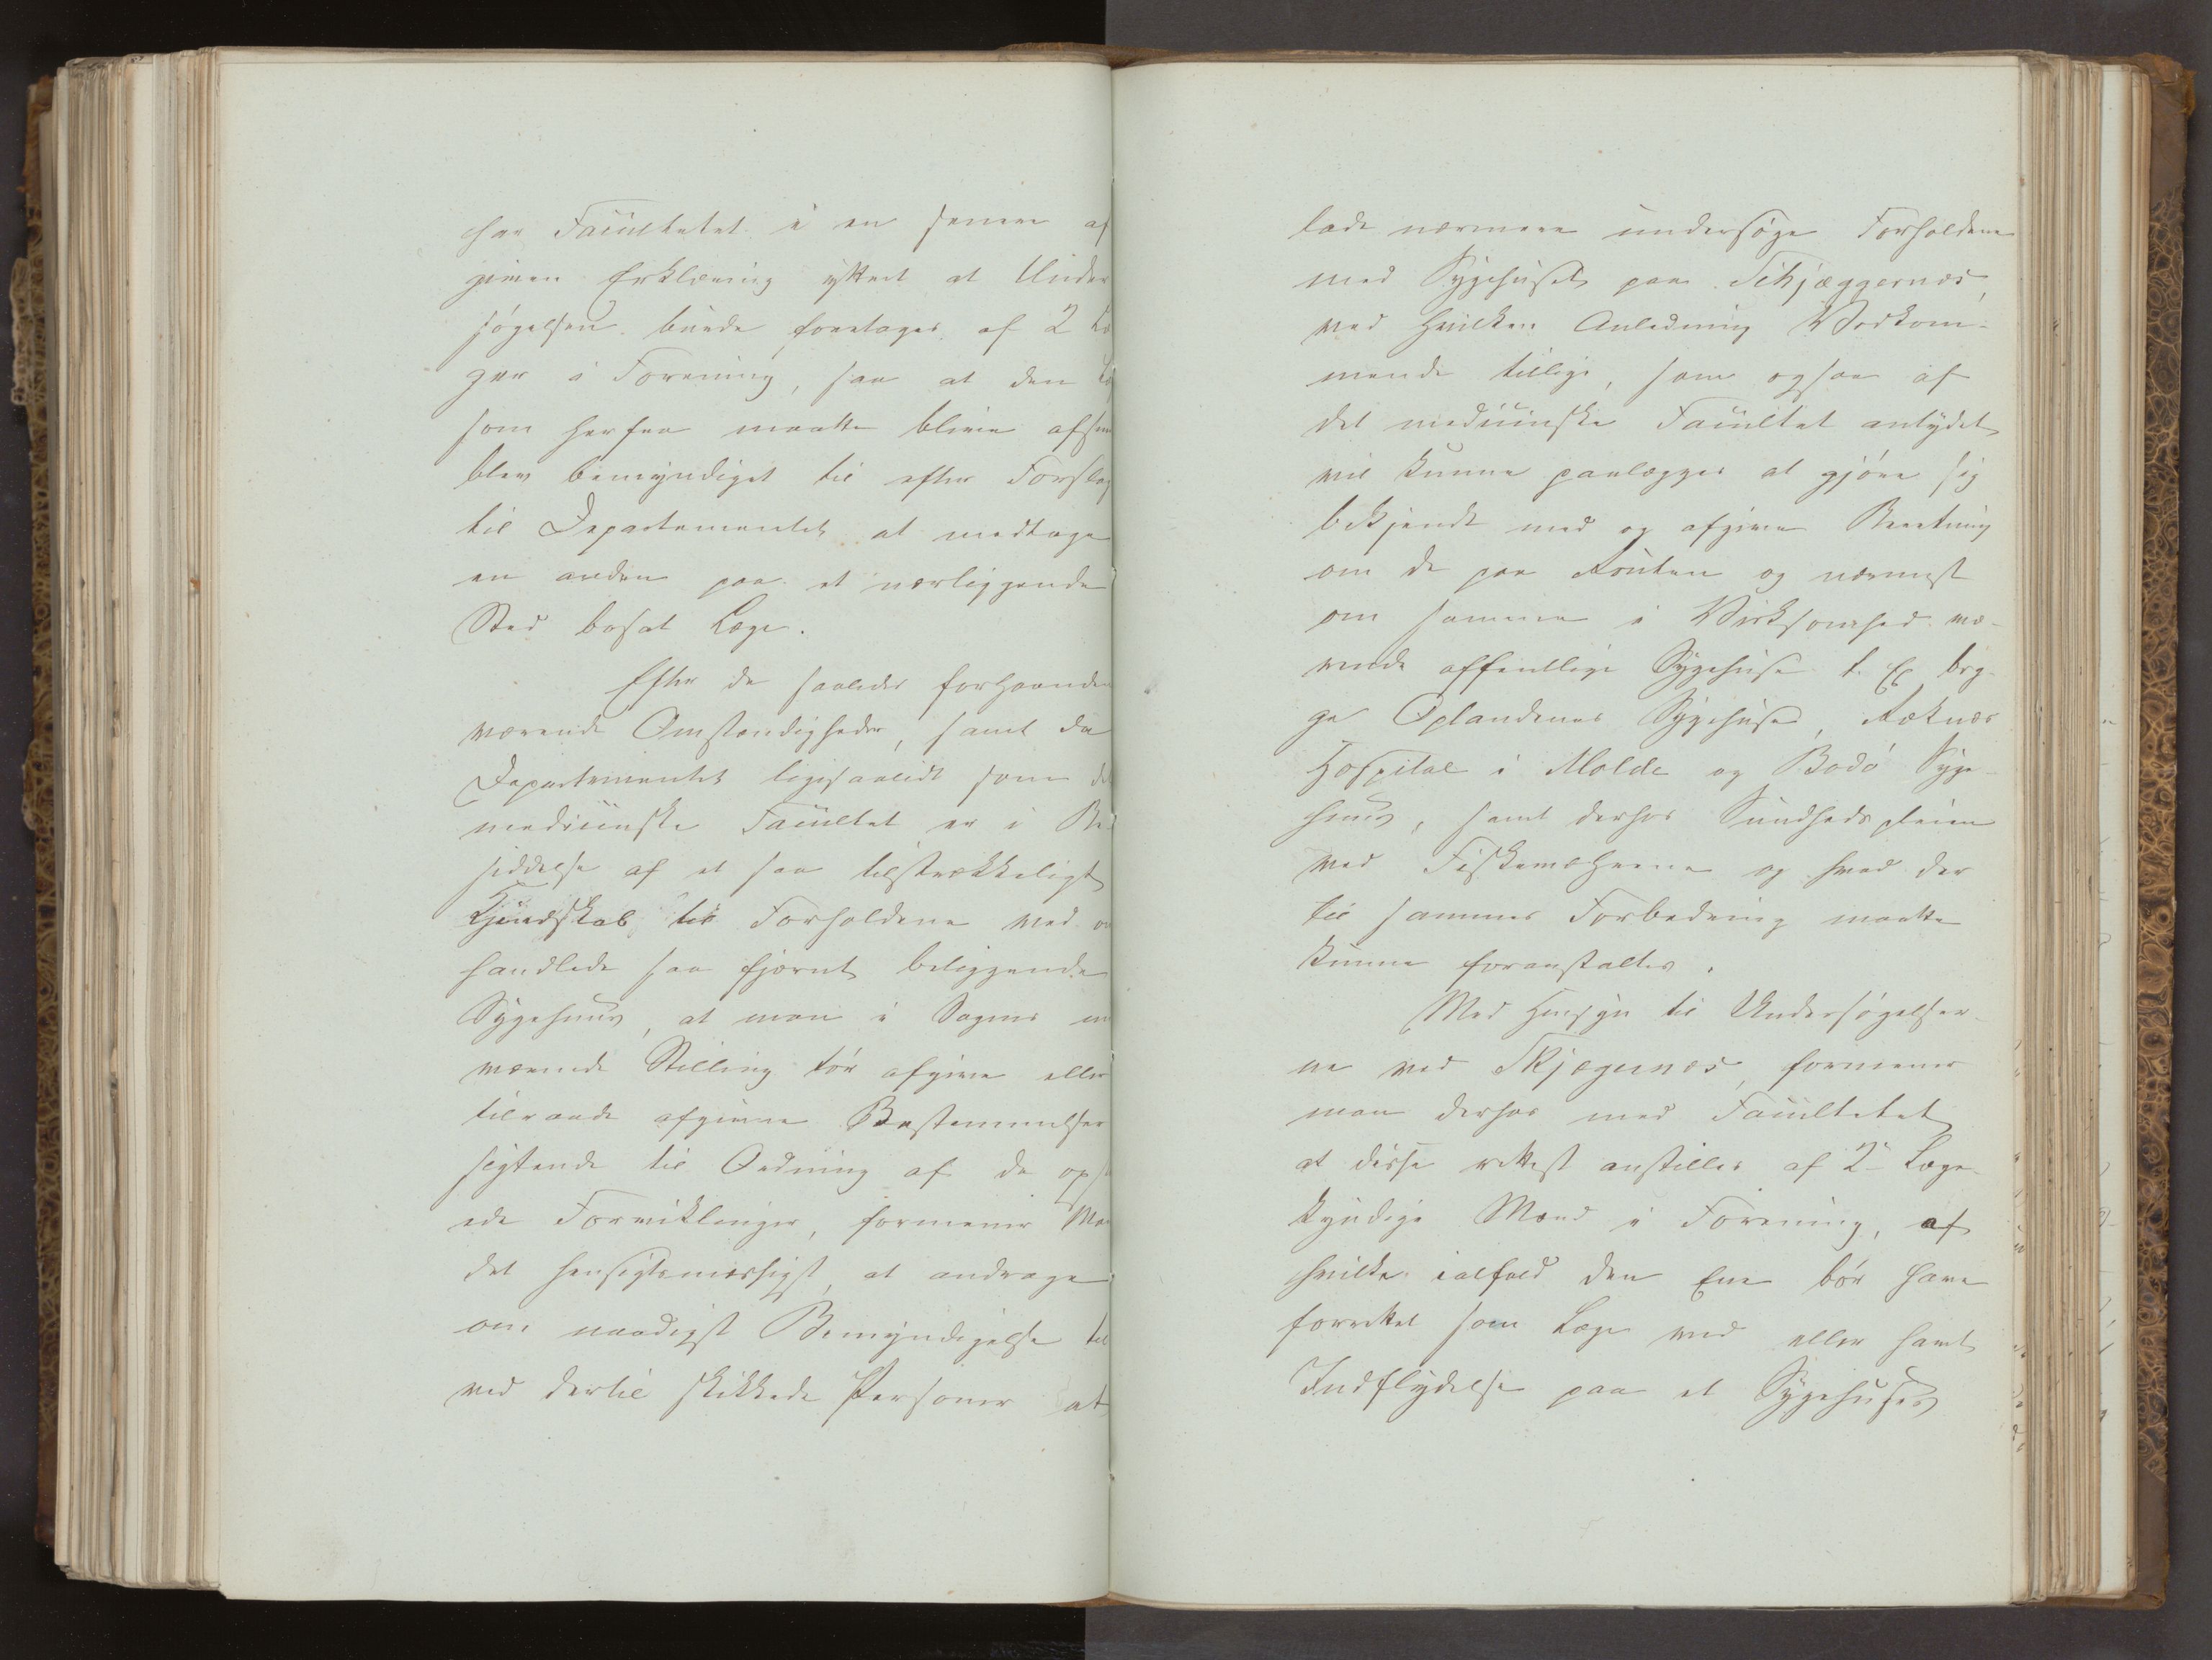 har Facultetet i en senere af
given Erklæring yttret at Under
søgelsen burde foretages af 2 Læ
ger i Forening, saa at den Læ
som herfra maatte blive afsen
blev bemyndiget til efter Forslag
til Departementet at medtage
en anden paa et nærliggende
Sted bosat Læge.
Efter de saaledes forhaanden
værende Omstændigheder, samt da
Departementet ligesaalidt som det
medicinske Facultet er i Be
siddelse af et saa tilstrækkeligt
Kjendskab til Forholdene ved om
handlede saa fjernt beliggende
Sygehuus, at man i Sagens nu
værende Stilling tør afgive eller
tilraade afgivne Bestemmelser
sigtende til Ordning af de opst
ede Forviklinger, formener Man
det hensigtsmæssigst, at andrage
om naadigst Bemyndigelse til
ved dertil skikkede Personer at
lade nærmere undersøge Forholdene
med Sygehuset paa Schjæggernæs,
ved hvilken Anledning Vedkom-
mende tillige, som ogsaa af
det medicinske Facultet antydet,
vil kunne paalægges at gjøre sig
bekjendt med og afgive Beretning
om de paa Routen og nærmest
om samme i Virksomhed væ-
rende offentlige Sygehuse t. Ex beg-
ge Oplandenes Sygehuse, Reknæs
Hospital i Molde og Bodø Syge-
huus, samt derhos Sundhedspleien
ved Fiskeværene og hvad der
til sammes Forbedring maatte
kunne foranstaltes.
Med Hensyn til Undersøgelser-
ne ved Skjægernæs, formener
man derhos med Facultetet
at disse rettest anstilles af 2de Læge-
kyndige Mænd i Forening, af
hvilke ialfald den Ene bør have
forrettet som Læge ved eller havt
Indflydelse paa et Sygehuses